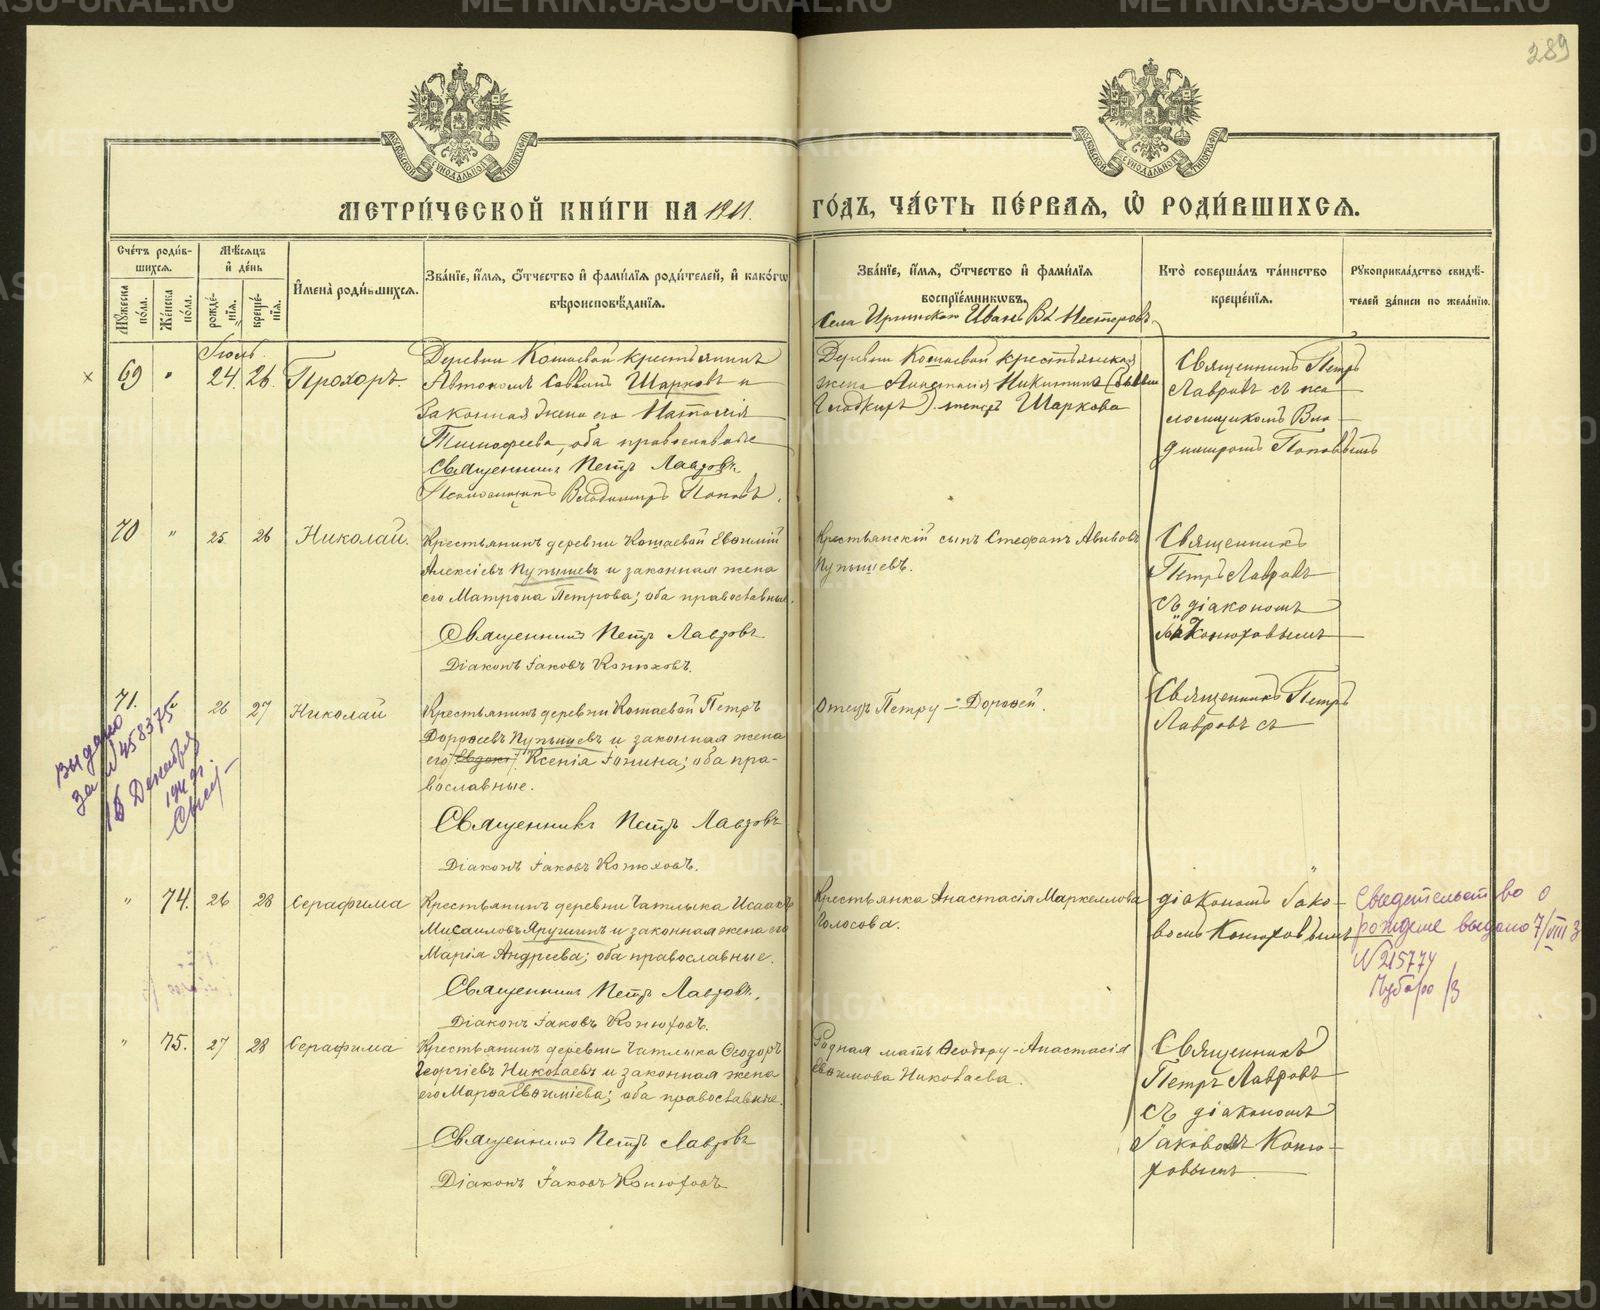 289
МЕТРИ́ЧЕСКОЙ КНИ́ГИ НА 1911. ГО́ДЪ, ЧА́СТЬ ПЕ́РВАЯ, Ѡ҆ РОДИ́ВШИХСЯ.
Сче́тъ роди́в-
шихся.
Мꙋжеска по́ла.
Же́нска по́ла.
Мѣ́сяцъ и҆ де́нь
рожде́нїя.
креще́нїя.
И҆мена̀ роди́вшихся.
Зва́нїе, и҆́мя, ѻ҆́тчество и҆ фами́лїя роди́телей, и҆ како́гѡ
вѣроисповѣ́данїя.
Зва́нїе, и҆́мя, ѻ҆́тчество и҆ фами́лїя
воспрїе́мникѡвъ.
Кто̀ соверша́лъ та́инство
креще́нїя.
Рꙋкоприкла́дство свидѣ́-
телей за́писи по жела́нїю.
Села Иргинского Иванъ Вас Нестеровъ
Іюль
69 " 24. 26. Прохоръ.
Деревни Кошаевой крестьянинъ
Автономъ Саввинъ Шарковъ и
законная жена его Наталія
Тимофеева, оба православные
Священникъ Петръ Лавровъ.
Псаломщикъ Владимиръ Поповъ.
Деревни Кошаевой крестьянская
жена Анастасія Никитина
теперь Шаркова
Священникъ Петръ
Лавровъ съ пса
ломщикомъ Вла
димиромъ Поповымъ
70 " 25 26 Николай.
Крестьянинъ деревни Кошаевой Евѳимій
Алексіевъ Пупышевъ и законная жена
его Матрона Петрова; оба православные.
Священникъ Петръ Лавровъ
Діаконъ Іаковъ Конюховъ.
Крестьянскій сынъ Стефанъ Авивовъ
Пупышевъ.
Священникъ
Петръ Лавровъ
съ діакономъ
Конюховымъ
71. 26 27 Николай
Крестьянинъ деревни Кошаевой Петръ
Дороѳеевъ Пупышевъ и законная жена
его Ксенія Іонина; оба пра-
вославные.
Священникъ Петръ Лавровъ
Діаконъ Іаковъ Конюховъ.
Отецъ Петру – Дороѳей.
Священникъ Петръ
Лавровъ съ
выдано
за №458375
15 Декабря
" 74. 26 28 Серафима
Крестьянинъ деревни Чатлыка Исаакъ
Мисаиловъ Ярушинъ и законная жена его
Марія Андреева; оба православные.
Священникъ Петръ Лавровъ.
Діаконъ Іаковъ Конюховъ.
Крестьянка Анастасія Маркеллова
Голосова.
діакономъ Іако-
вомъ Конюховымъ
Свидетельство о
рождение выдано 7/VIII 3
№ 215774
" 75. 27 28 Серафима
Крестьянинъ деревни Чатлыка Ѳеодоръ
Георгіевъ Николаевъ и законная жена
его Марѳа Евѳиміева; оба православные.
Священникъ Петръ Лавровъ
Діаконъ Іаковъ Конюховъ
Родная мать Ѳеодору – Анастасія
Евѳимова Николаева.
Священникъ
Петръ Лавровъ
съ діакономъ
Іаковомъ Коню-
ховымъ
METRIKI.GASO-URAL.RU